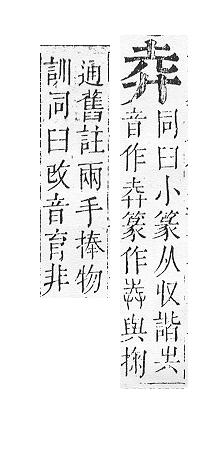 同曰小篆从収諧圥
音作篆作與掬
通舊註兩手捧物
訓同曰改音育非